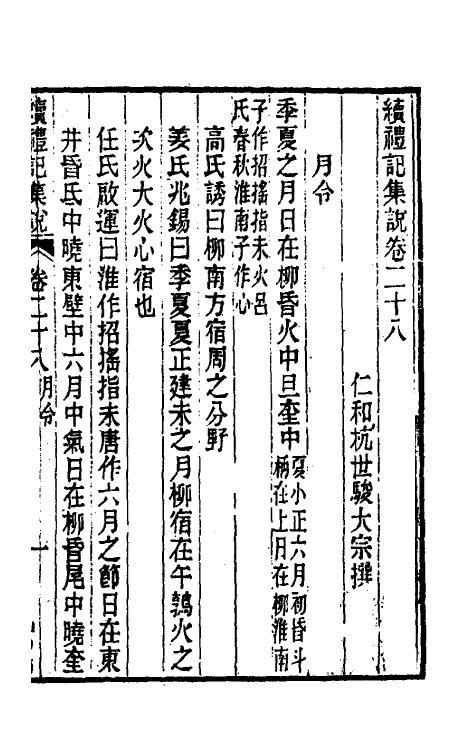 續禮記集說卷二十八
仁和杭世駿大宗撰
月令
季夏之月日在柳昏火中旦奎中夏小正六月初昏斗
柄在上月在柳淮南
子作招搖指未火呂
氏春秋淮南子作心
高氏誘曰柳南方宿周之分野
姜氏兆錫曰季夏夏正建未之月柳宿在午鶉火之
次火大火心宿也
任氏啟運曰淮作招搖指未唐作六月之節日在東
井昏氐中曉東壁中六月中氣日在柳昏尾中曉奎
續禮記集說 卷二十八 月令 一